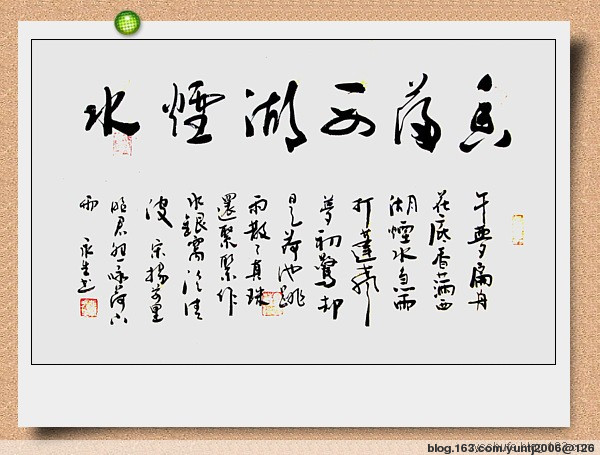 香滿西湖煙水
午夢扁舟
花底香滿西
湖煙水急雨
打蓬聲
夢初驚却
是荷池跳
雨散了真珠
還聚聚作
水銀窩泻清
波 宋楊萬里
昭君怨咏荷上
雨
blog.163.com/yuntj2006@126